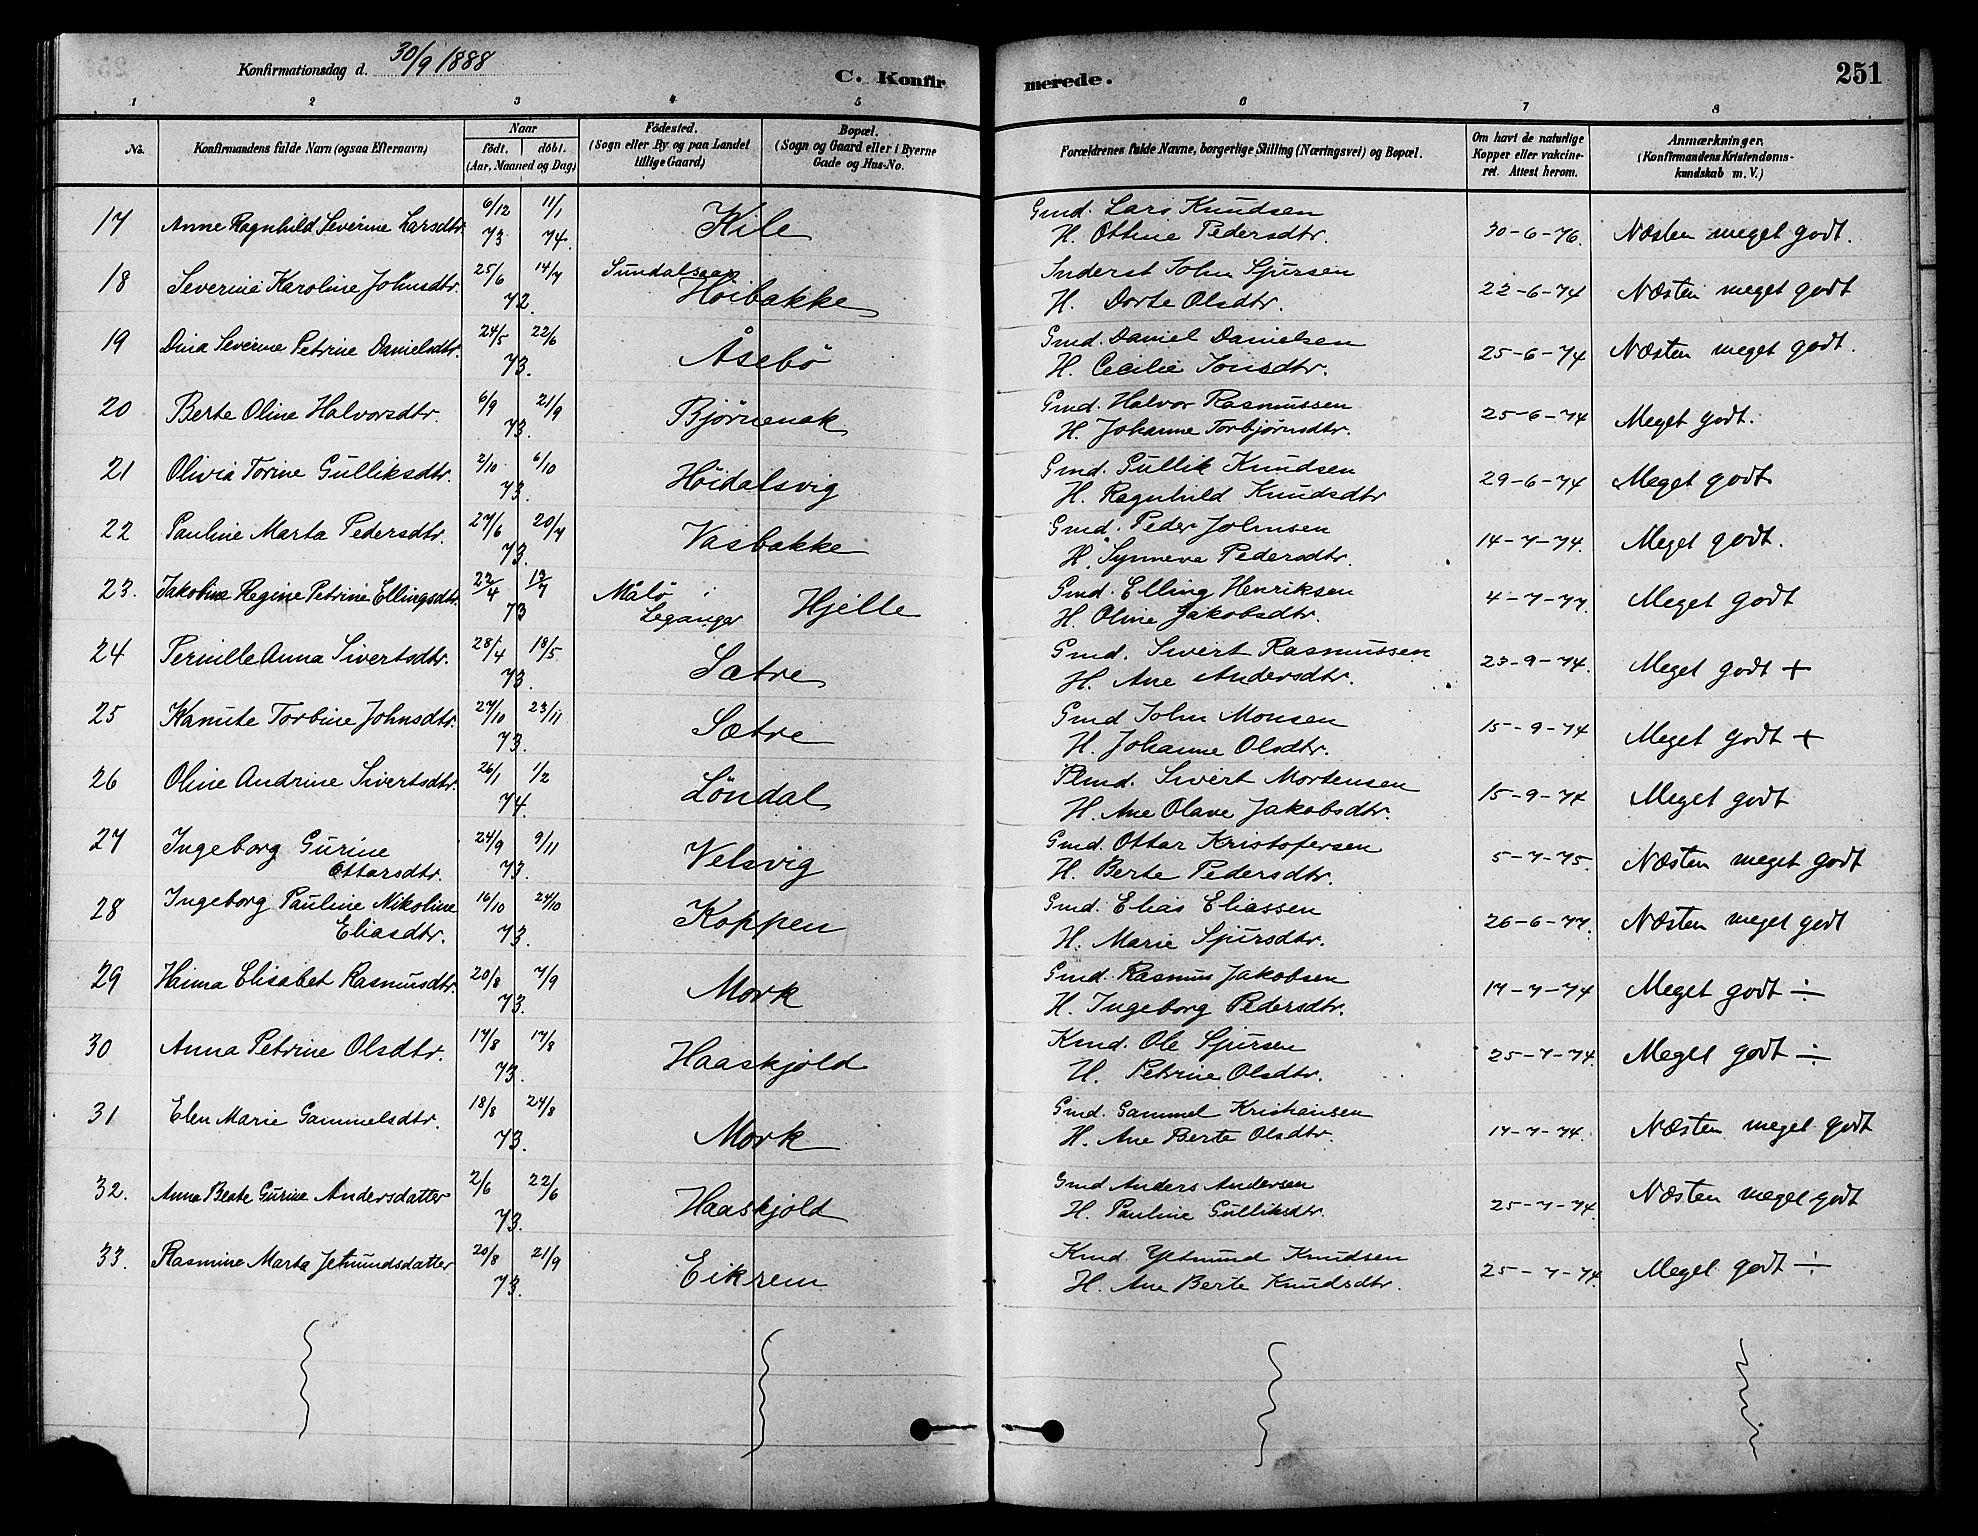 Konfirmationsdag d. 30/9 1888
C. Konfirmerede.
251
1 2 3 4 5 6 7 8
No.
Konfirmandens fulde Navn (ogsaa Efternavn)
Naar
født. døbt.
(Aar, Maaned og Dag)
Fødested.
(Sogn eller By og paa Landet
tillige Gaard)
Bopæl.
(Sogn og Gaard eller i Byerne
Gade og Hus-No.
Forældrenes fulde Navne, borgerlige Stilling (Næringsvei) og Bopæl.
Om havt de naturlige
Kopper eller vakcine-
ret. Attest herom.
Anmærkninger.
(Konfirmandens Kristendoms-
kundskab m. V.)
17 Anne Ragnhild Severine Larsdtr. 6/12 73 11/1 74. Kile Gmd. Lars Knudsen 30-6-76. Næsten meget godt.
H. Ottine Pedersdtr.
18 Severine Karoline Johnsdtr. 25/6 14/7 72. Sundalsaap Høibakke Inderst John Sjursen 22-6-74 Næsten meget godt
H. Dorte Olsdtr.
19 Dina Severine Petrine Danielsdtr. 24/5 22/6 73. Åsebø Gmd. Daniel Danielsen 25-6-74 Næsten meget godt.
H. Cecilie Jonsdtr.
20 Berte Oline Halvorsdtr. 6/9 21/9 73. Bjørnenak Gmd. Halvor Rasmussen 25-6-74 Meget godt.
H. Johanne Torbjørnsdtr.
21 Olivia Torine Gulliksdtr. 2/10 6/10 73. Høidalsvig Gmd. Gullik Knudsen 29-6-74 Meget godt
H. Ragnhild Knudsdtr
22 Pauline Marta Pedersdtr. 27/6 20/7 73. Vasbakke Gmd. Peder Johnsen 14-7-74. Meget godt.
H. Synneve Pedersdtr.
23. Jakobine Regine Petrine Ellingsdtr. 22/4 13/7 73 Målø i Leganger Hjelle Gmd. Elling Henriksen 4-7-77. Meget godt
H. Oline Jakobsdtr.
24 Pernille Anna Sivertsdtr. 28/4 18/5 73. Sætre Gmd. Sivert Rasmussen 23-9-74. Meget godt +
H. Ane Andersdtr.
25 Kanute Torbine Johnsdtr. 27/10 23/11 73. Sætre Gmd John Monsen 15-9-74 Meget godt +
H. Johanne Olsdtr.
26 Oline Andrine Sivertsdtr. 26/1 1/2 74. Løndal Plmd. Sivert Mortensen 15-9-74 Meget godt
H. Ane Olave Jakobsdtr.
27 Ingeborg Gurine Ottarsdtr. 24/9 9/11 73. Velsvig Gmd. Ottar Kristofersen 5-7-75. Næsten meget godt
H. Berte Pedersdtr.
28 Ingeborg Pauline Nikoline Eliasdtr. 16/10 24/10 73. Koppen Gmd. Elias Eliassen 26-6-77. Næsten meget godt
H. Marie Sjursdtr.
29 Hanna Elisabet Rasmusdtr. 20/8 7/9 73. Mork Gmd. Rasmus Jakobsen 17-7-74 Meget godt ÷
H. Ingeborg Pedersdtr.
30 Anna Petrine Olsdtr. 17/8 17/8 73. Haaskjold Kmd. Ole Sjursen 25-7-74. Meget godt ÷
H. Petrine Olsdtr.
31 Elen Marie Gammelsdtr. 18/8 24/8 73. Mork Gmd. Gammel Kristiansen 17-7-74. Næsten meget godt
H. Ane Berte Olsdtr.
32. Anna Beate Gurine Andersdatter 2/6 22/6 73. Haaskjold Gmd Anders Andersen 25-7-74. Næsten meget godt
H. Pauline Gulliksdtr.
33. Rasmine Marta Jetmundsdatter 20/8 21/9 73. Eikrem Kmd. Jetmund Knudsen 25-7-74. Meget godt ÷
H. Ane Berte Knudsdtr.